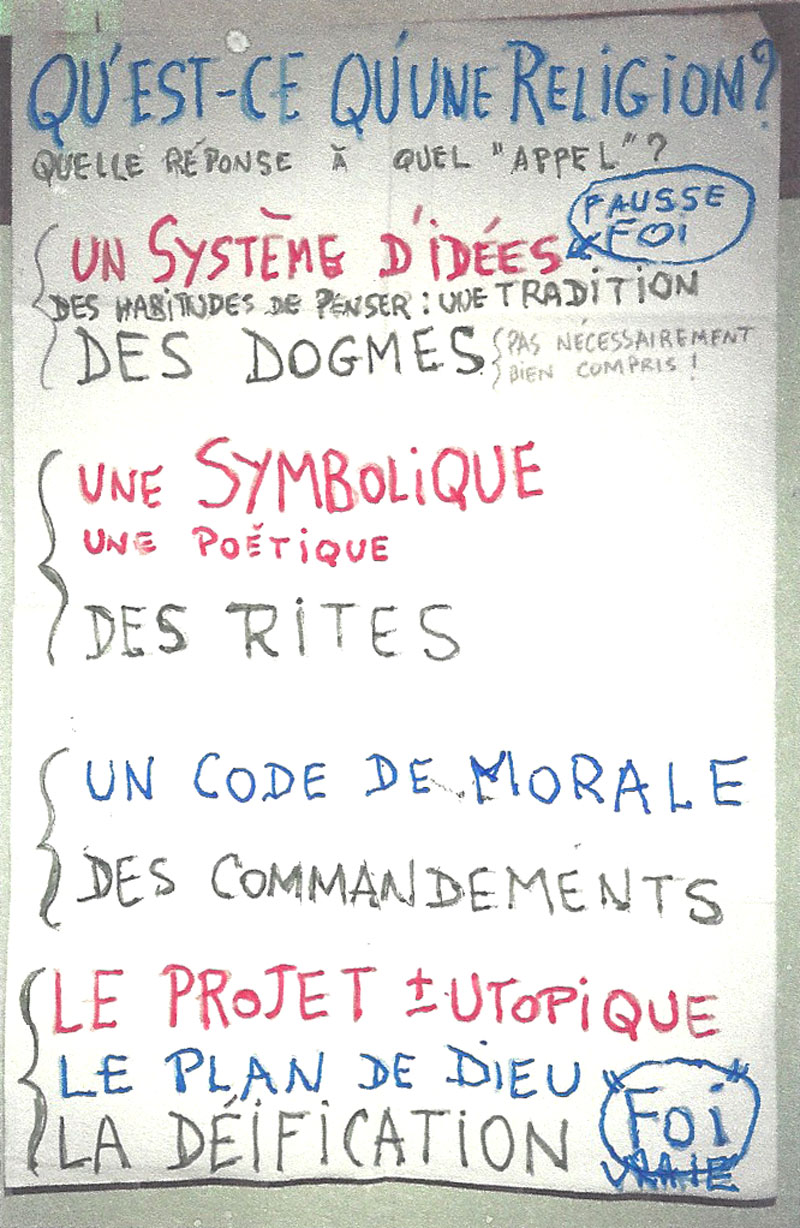 QU'EST-CE QU'UNE RELIGION?
QUELLE RÉPONSE À QUEL "APPEL"?
FAUSSE
FOI
UN SYSTÈME D'IDÉES
DES HABITUDES DE PENSER : UNE TRADITION
DES DOGMES
PAS NÉCESSAIREMENT
BIEN COMPRIS !
UNE SYMBOLIQUE
UNE POÉTIQUE
DES RITES
UN CODE DE MORALE
DES COMMANDEMENTS
LE PROJET ± UTOPIQUE
LE PLAN DE DIEU
LA DÉIFICATION
"FOI"
VRAIE